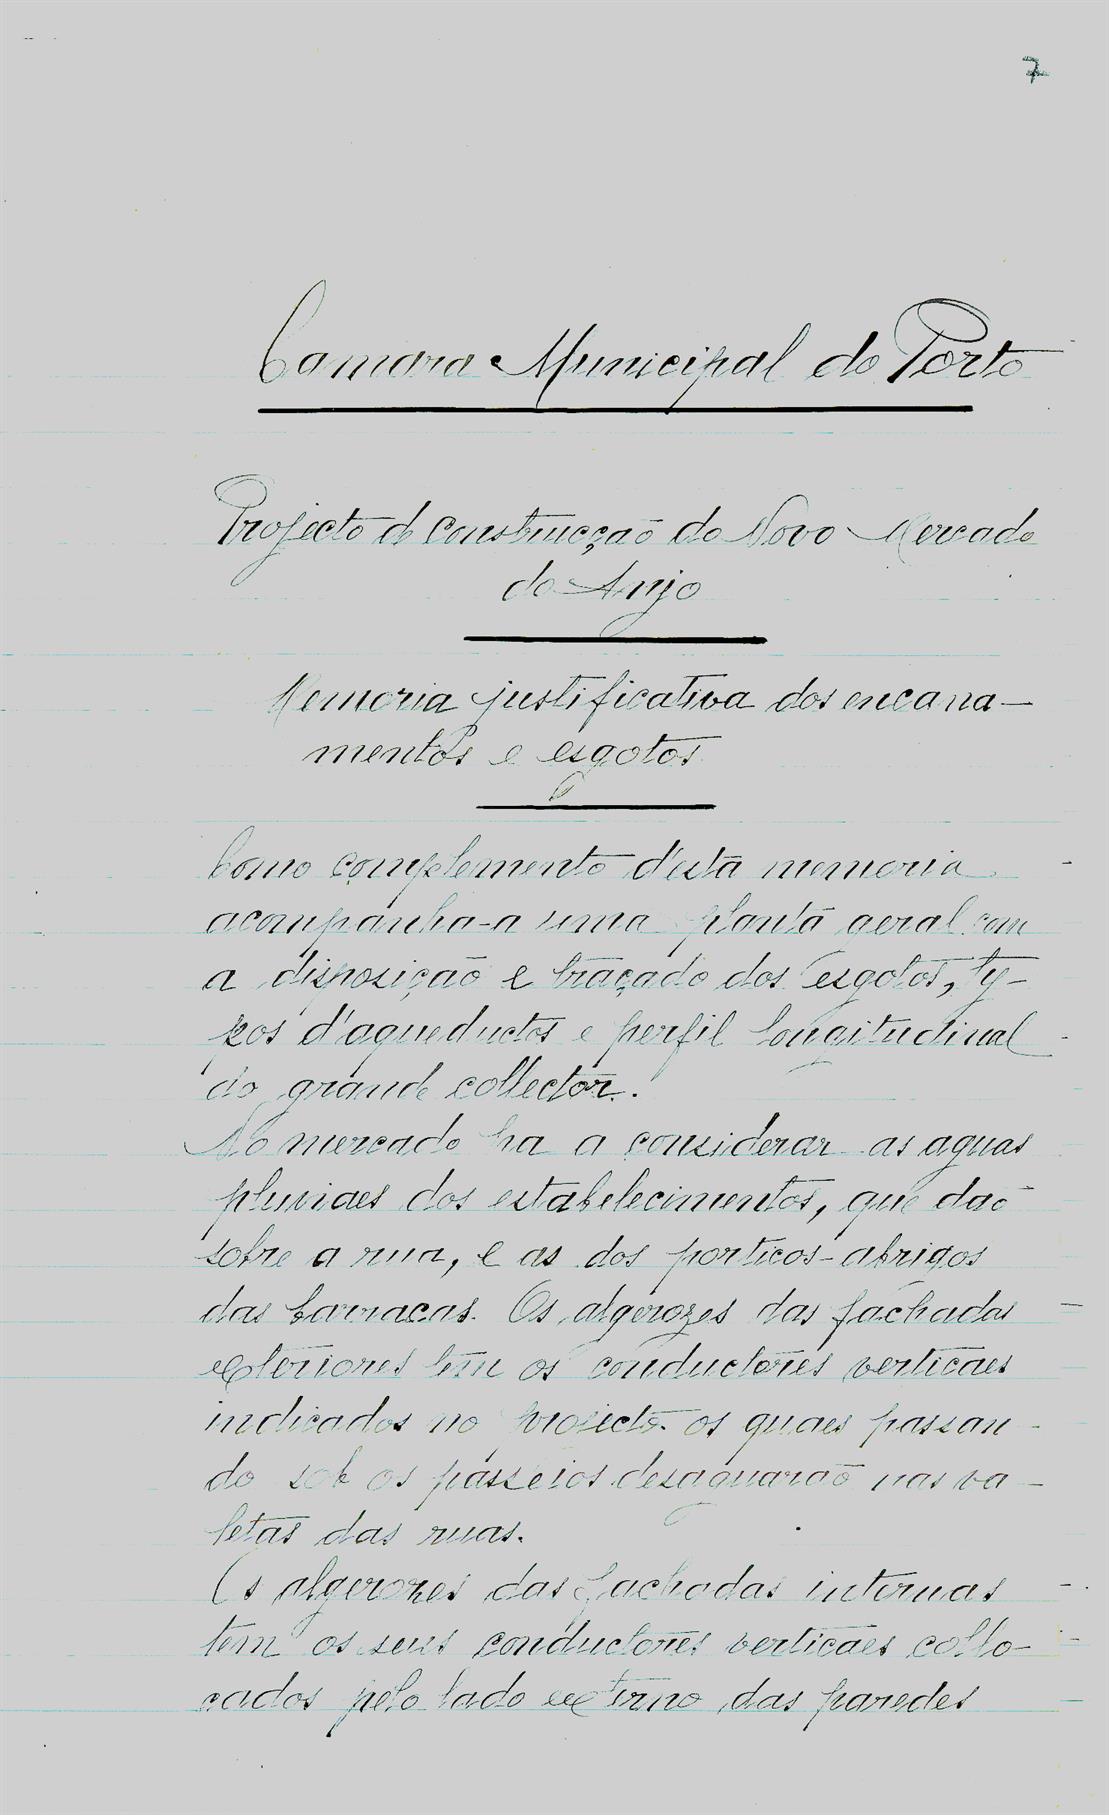 7
Camara Municipal do Porto
Projecto de construcção do Novo Mercado
do Anjo
Memoria justificativa dos encana-
mentos e esgotos
Como complemento d'esta memoria
acompanha-a uma planta geral com
a disposição e traçado dos esgotos, ty-
pos d'aqueductos e perfil longitudinal
do grande collector.
No mercado ha a considerar as aguas
pluviaes dos estabelecimentos, que dão
sobre a rua, e as dos porticos-abrigos
das barracas. Os algerozes das fachadas
exteriores tem os conductores verticaes
indicados no projecto os quaes passan-
do sob os passeios desaguarão nas va-
letas das ruas.
Os algerozes das fachadas internas
tem os seus conductores verticaes collo-
cados pelo lado externo das paredes